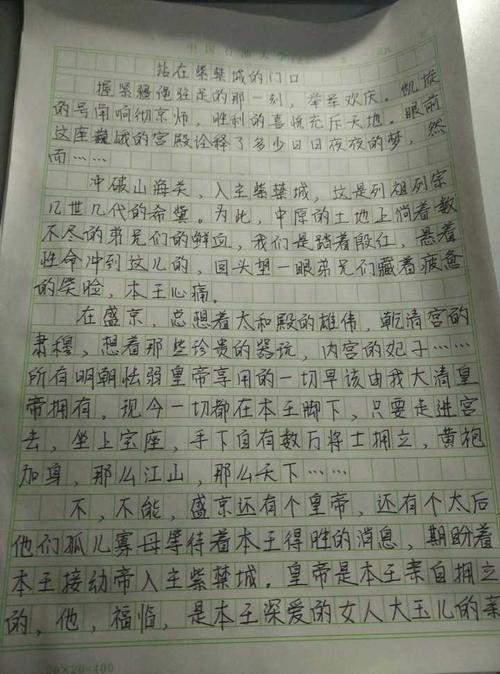 中国石油大学
站在紫禁城的门口
握紧缰绳驻足的那一刻，举军欢庆。凯旋
的号角响彻京师，胜利的喜悦充斥天地。眼前
这座巍峨的宫殿诠释了多少日日夜夜的梦，然
而……
冲破山海关，入主紫禁城，这是列祖列宗
几世几代的希冀。为此，中原的土地上淌着数
不尽的弟兄们的鲜血，我们是踏着殷红，悬着
性命冲到这儿的，回头望一眼弟兄们藏着疲惫
的笑脸，本王心痛。
在盛京，总想着太和殿的雄伟，乾清宫的
肃穆，想着那些珍贵的器玩，内宫的妃子……
所有明朝怯弱皇帝享用的一切早该由我大清皇
帝拥有。现今一切都在本王脚下，只要走进宫
去，坐上宝座，手下自有数万将士拥立，黄袍
加身，那么江山，那么天下……
不，不能，盛京还有个皇帝，还有个太后
他们孤儿寡母等待着本王得胜的消息，期盼着
本王接幼帝入主紫禁城。皇帝是本王亲自拥立
的，他，福临，是本王深爱的女人大玉儿的亲
20×20=400